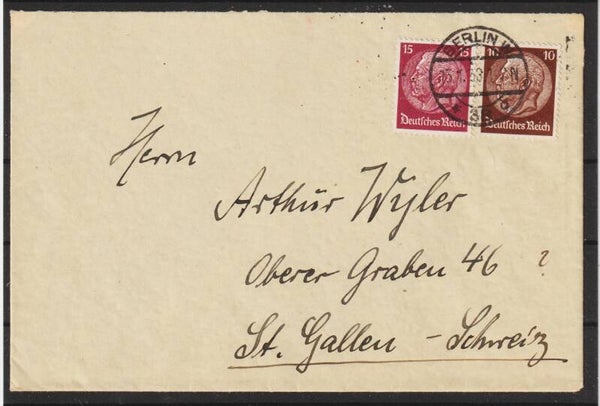 15 15
10 10
Deutsches Reich
Deutsches Reich
BERLIN W
Herrn
Arthur Wyler
Oberer Graben 46 ?
St. Gallen - Schweiz